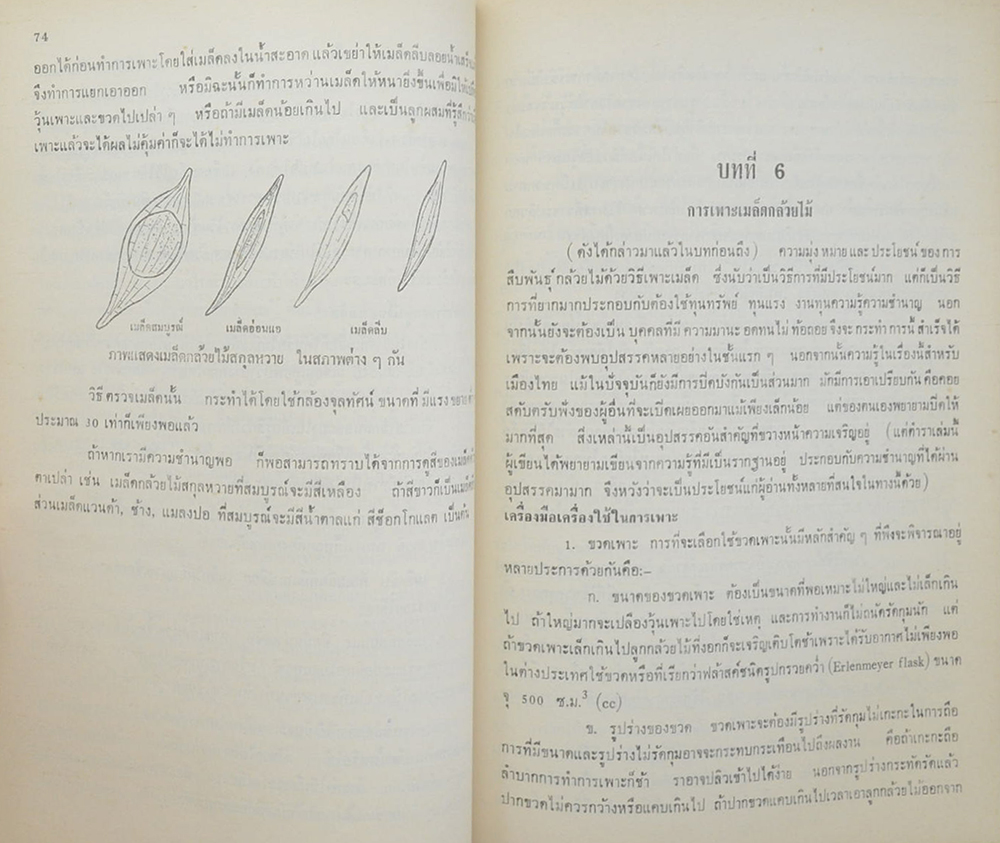 74
ออกได้ก่อนทำการเพาะโดยใส่เมล็ดลงในน้ำสะอาด แล้วเขย่าให้เมล็ดลีบลอยน้ำเสร็จ
จึงทำการแยกเอาออก หรือมิฉะนั้นก็ทำการหว่านเมล็ดให้หนายิ่งขึ้นเพื่อมิให้
วุ้นเพาะและขวดไปเปล่า ๆ หรือถ้ามีเมล็ดน้อยเกินไป และเป็นลูกผสมที่รู้สึก
เพาะแล้วจะได้ผลไม่คุ้มค่าก็จะได้ไม่ทำการเพาะ
เมล็ดสมบูรณ์ เมล็ดอ่อนแอ เมล็ดลีบ
ภาพแสดงเมล็ดกล้วยไม้สกุลหวาย ในสภาพต่าง ๆ กัน
วิธีตรวจเมล็ดนั้น กระทำได้โดยใช้กล้องจุลทัศน์ ขนาดที่มีแรงขยาย
ประมาณ 30 เท่าก็เพียงพอแล้ว
ถ้าหากเรามีความชำนาญพอ ก็พอสามารถทราบได้จากการดูสีของเมล็ด
ตาเปล่า เช่น เมล็ดกล้วยไม้สกุลหวายที่สมบูรณ์จะมีสีเหลือง ถ้าสีขาวก็เป็นเมล็ด
ส่วนเมล็ดแวนด้า, ช้าง, แมลงปอ ที่สมบูรณ์จะมีสีน้ำตาลแก่ สีช็อกโกแลต เป็นต้น
บทที่ 6
การเพาะเมล็ดกล้วยไม้
(ดังได้กล่าวมาแล้วในบทก่อนถึง) ความมุ่งหมายและประโยชน์ของการ
สืบพันธุ์กล้วยไม้ด้วยวิธีเพาะเมล็ด ซึ่งนับว่าเป็นวิธีการที่มีประโยชน์มาก แต่ก็เป็นวิธี
การที่ยากมากประกอบกับต้องใช้ทุนทรัพย์ ทุนแรง งานทุนความรู้ความชำนาญ นอก
จากนั้นยังจะต้องเป็น บุคคลที่มี ความมานะ อดทนไม่ ท้อถอย จึงจะ กระทำ การนี้ สำเร็จได้
เพราะจะต้องพบอุปสรรคหลายอย่างในชั้นแรก ๆ นอกจากนั้นความรู้ในเรื่องนี้สำหรับ
เมืองไทย แม้ในปัจจุบันก็ยังมีการปิดบังกันเป็นส่วนมาก มักมีการเอาเปรียบกัน คือคอย
สดับตรับฟังของผู้อื่นที่จะเปิดเผยออกมาแม้เพียงเล็กน้อย แต่ของตนเองพยายามปิดให้
มากที่สุด สิ่งเหล่านี้เป็นอุปสรรคอันสำคัญที่ขวางหน้าความเจริญอยู่ (แต่ตำราเล่มนี้
ผู้เขียนได้พยายามเขียนจากความรู้ที่มีเป็นรากฐานอยู่ ประกอบกับความชำนาญที่ได้ผ่าน
อุปสรรคมามาก จึงหวังว่าจะเป็นประโยชน์แก่ผู้อ่านทั้งหลายที่สนใจในทางนี้ด้วย)
เครื่องมือเครื่องใช้ในการเพาะ
1. ขวดเพาะ การที่จะเลือกใช้ขวดเพาะนั้นมีหลักสำคัญ ๆ ที่พึงจะพิจารณาอยู่
หลายประการด้วยกันคือ:–
ก. ขนาดของขวดเพาะ ต้องเป็นขนาดที่พอเหมาะไม่ใหญ่และไม่เล็กเกิน
ไป ถ้าใหญ่มากจะเปลืองวุ้นเพาะไปโดยใช่เหตุ และการทำงานก็ไม่ถนัดรัดกุมนัก แต่
ถ้าขวดเพาะเล็กเกินไปลูกกล้วยไม้ที่งอกก็จะเจริญเติบโตช้าเพราะได้รับอากาศไม่เพียงพอ
ในต่างประเทศใช้ขวดหรือที่เรียกว่าฟล้าสค์ชนิดรูปกรวยคว่ำ (Erlenmeyer flask) ขนาด
จุ 500 ซ.ม.³ (cc)
ข. รูปร่างของขวด ขวดเพาะจะต้องมีรูปร่างที่รัดกุมไม่เกะกะในการถือ
การที่มีขนาดและรูปร่างไม่รัดกุมอาจจะกระทบกระเทือนไปถึงผลงาน คือถ้าเกะกะถือ
ลำบากการทำการเพาะก็ช้า ราอาจปลิวเข้าไปได้ง่าย นอกจากรูปร่างกระทัดรัดแล้ว
ปากขวดไม่ควรกว้างหรือแคบเกินไป ถ้าปากขวดแคบเกินไปเวลาเอาลูกกล้วยไม้ออกจาก